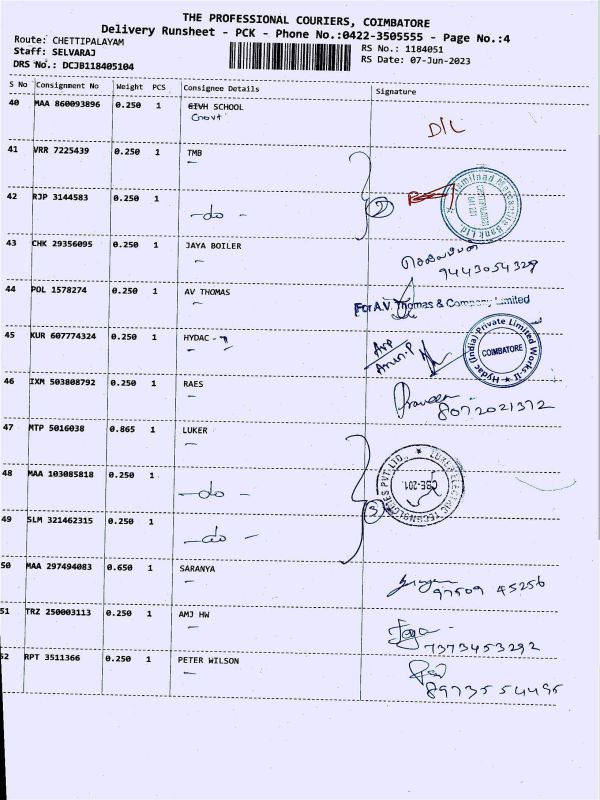 THE PROFESSIONAL COURIERS, COIMBATORE
Delivery Runsheet - PCK - Phone No.:0422-3505555 - Page No.:4
Route: CHETTIPALAYAM
RS No.: 1184051
Staff: SELVARAJ
RS Date: 07-Jun-2023
DRS No.: DCJB118405104
S No Consignment No Weight PCS Consignee Details Signature
40 MAA 860093896 0.250 1 GIVH SCHOOL
Govt
D/L
41 VRR 7225439 0.250 1 TMB
42 RJP 3144583 0.250 1 -do-
2
Tamilnad Mercantile Bank Ltd
43 CHK 29356095 0.250 1 JAYA BOILER
9443054329
44 POL 1578274 0.250 1 AV THOMAS
For A.V. Thomas & Company Limited
45 KUR 607774324 0.250 1 HYDAC
Arun.P
Hydac (India) Private Limited Works-II
COIMBATORE
46 IXM 503808792 0.250 1 RAES
Praveen
8072021372
47 MTP 5016038 0.865 1 LUKER
48 MAA 103085818 0.250 1 -do-
3
LUKER ELECTRIC TECHNOLOGIES PVT.LTD.
49 SLM 321462315 0.250 1 -do-
50 MAA 297494083 0.650 1 SARANYA
97509 45256
51 TRZ 250003113 0.250 1 AMJ HW
7373453292
52 RPT 3511366 0.250 1 PETER WILSON
8973554495